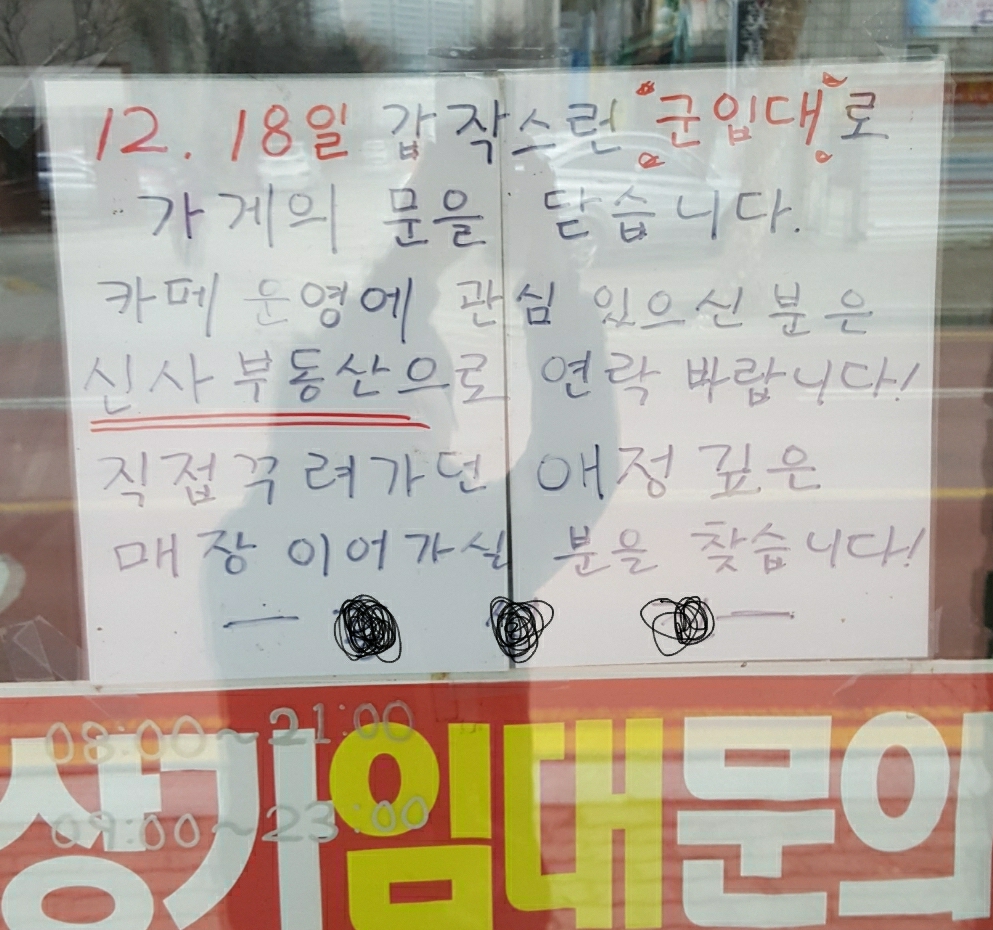 12. 18일 갑작스런 "군입대"로
가게의 문을 닫습니다.
카페 운영에 관심 있으신 분은
신사 부동산으로 연락 바랍니다!
직접 꾸려가던 애정 깊은
매장 이어가실 분을 찾습니다!
08:00~21:00
09:00~23:00
상가임대문의